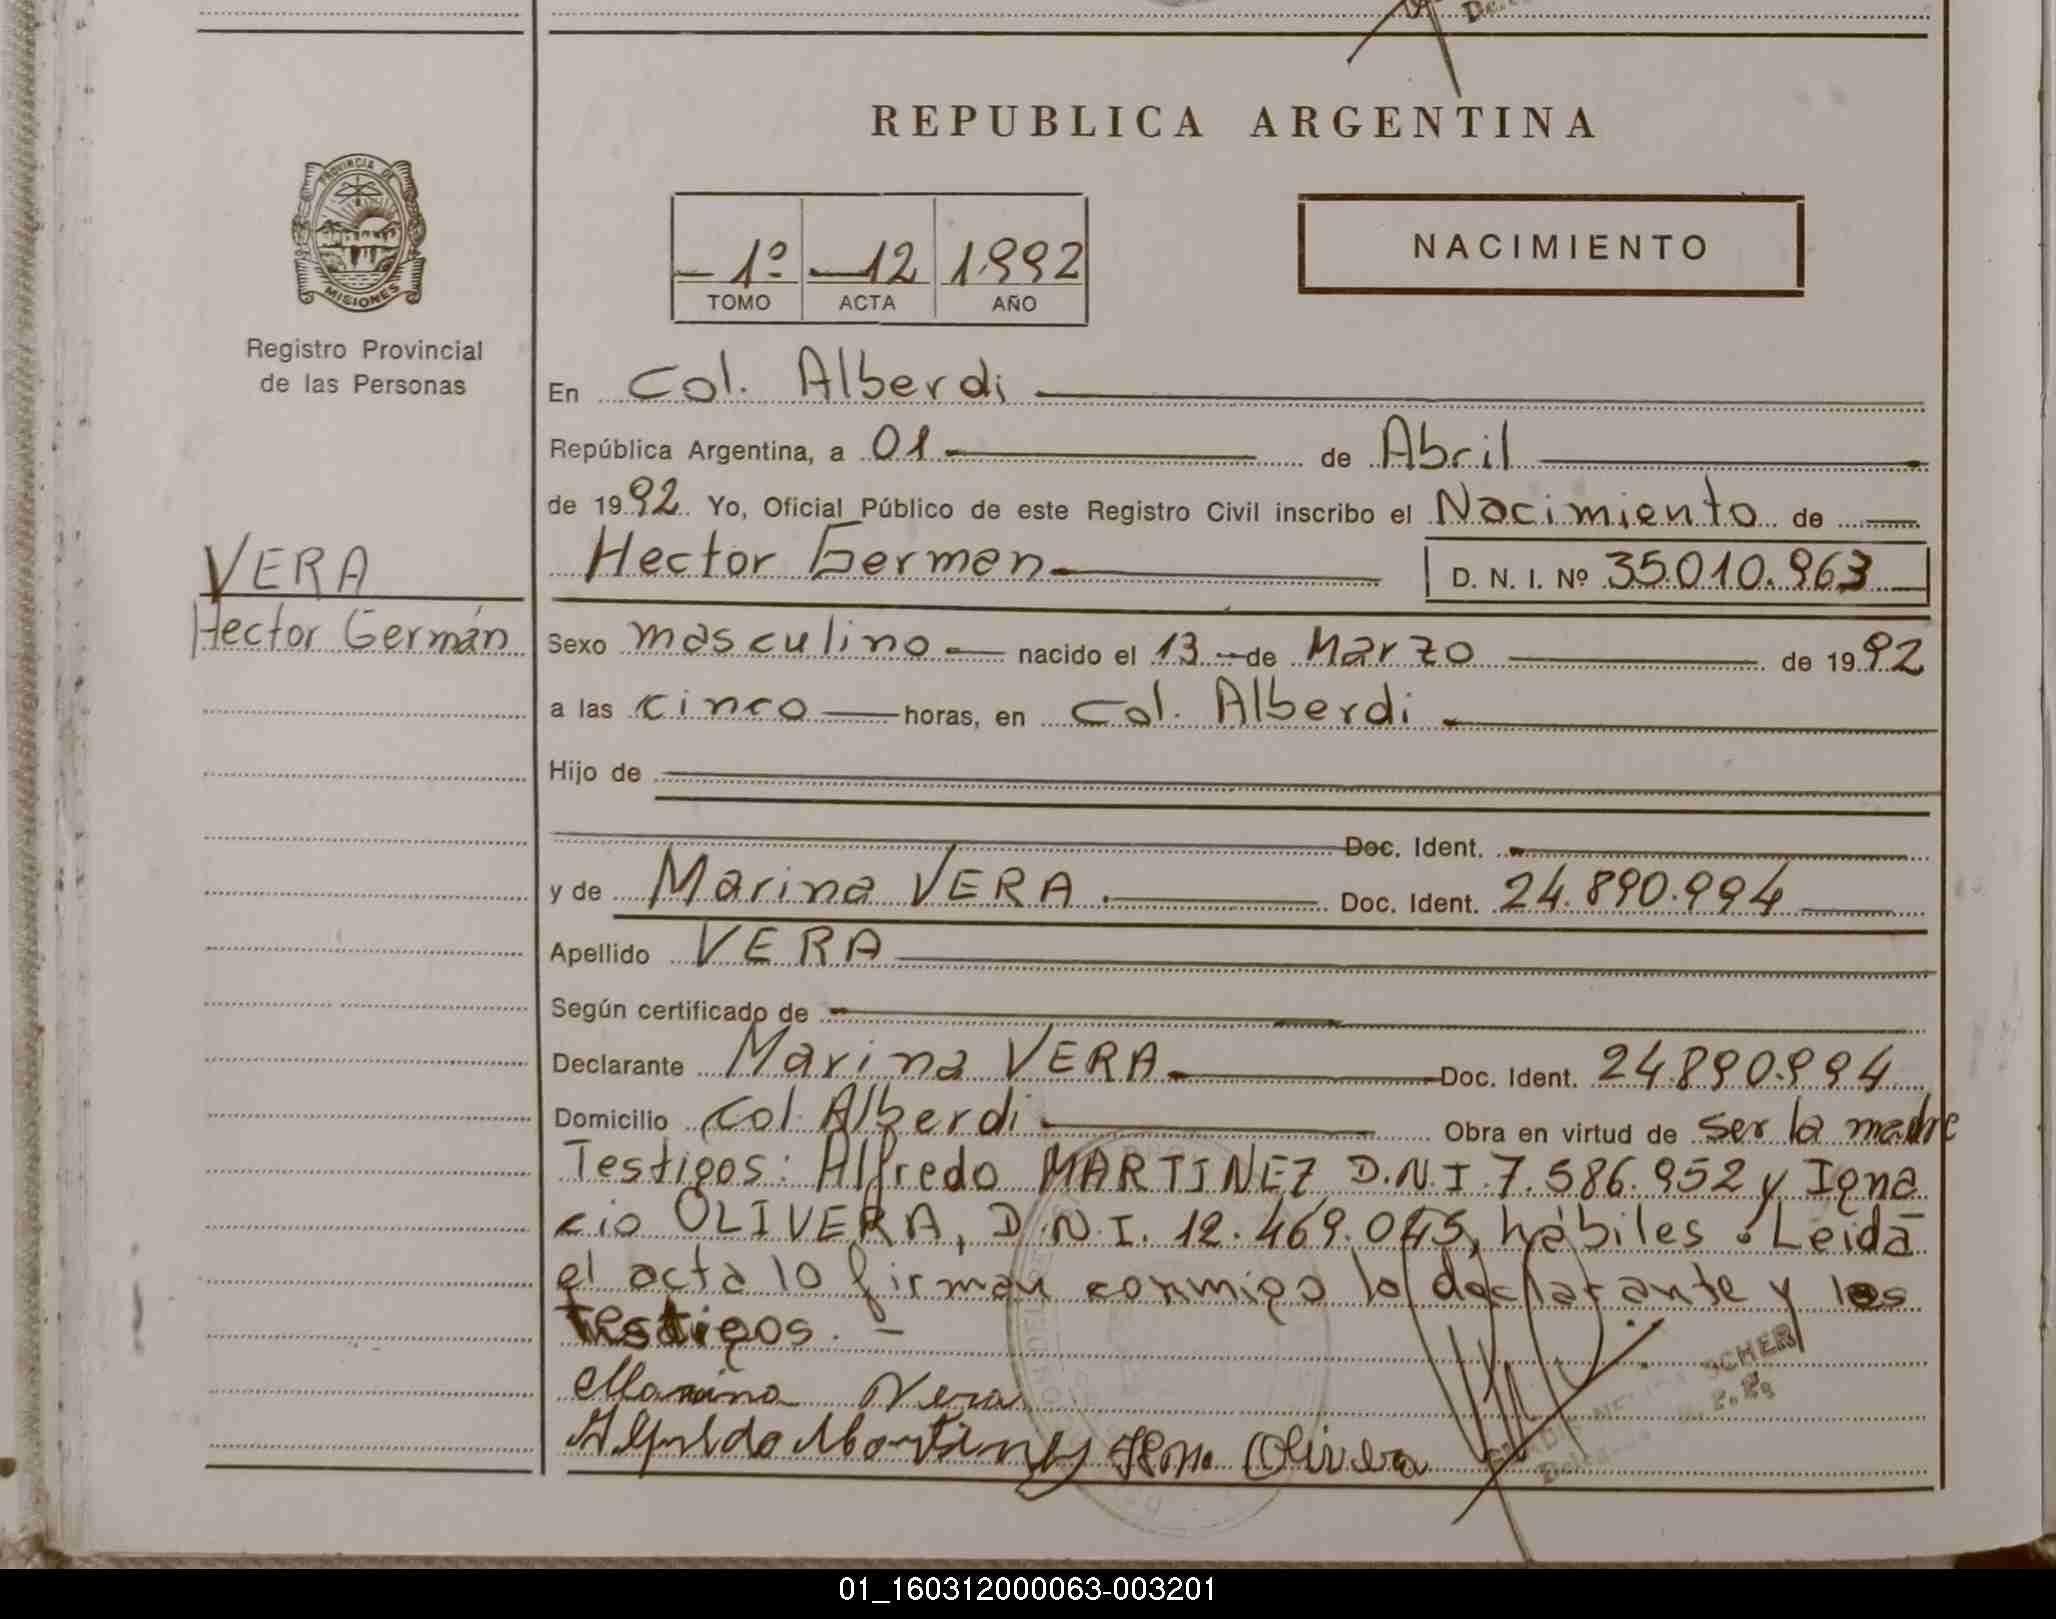 REPUBLICA ARGENTINA
PROVINCIA DE
MISIONES
Registro Provincial
de las Personas
1º 12 1992
TOMO ACTA AÑO
NACIMIENTO
VERA
Hector Germán
En Col. Alberdi
República Argentina, a 01 de Abril
de 1992 Yo, Oficial Público de este Registro Civil inscribo el Nacimiento de
Hector German D. N. I. Nº 35.010.963
Sexo masculino nacido el 13 de Marzo de 1992
a las cinco horas, en Col. Alberdi
Hijo de
Doc. Ident.
y de Marina VERA Doc. Ident. 24.890.994
Apellido VERA
Según certificado de
Declarante Marina VERA Doc. Ident. 24890.994
Domicilio Col. Alberdi Obra en virtud de ser la madre
Testigos: Alfredo MARTINEZ D.N.I. 7.586.952 y Igna
cio OLIVERA, D.N.I. 12.469.045, hábiles. Leida
el acta lo firman conmigo la declarante y los
testigos. -
Marina Vera
Alfredo Martinez Olivera
SCHER
01_160312000063-003201